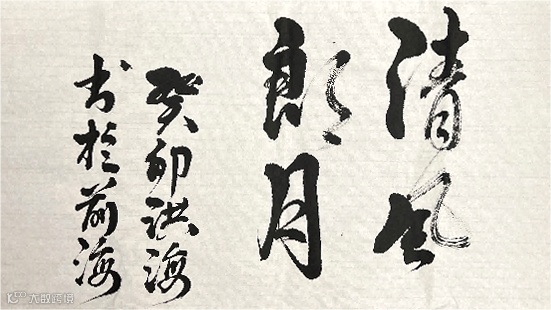 清风
朗月
癸卯洪海
书於前海
大数跨境